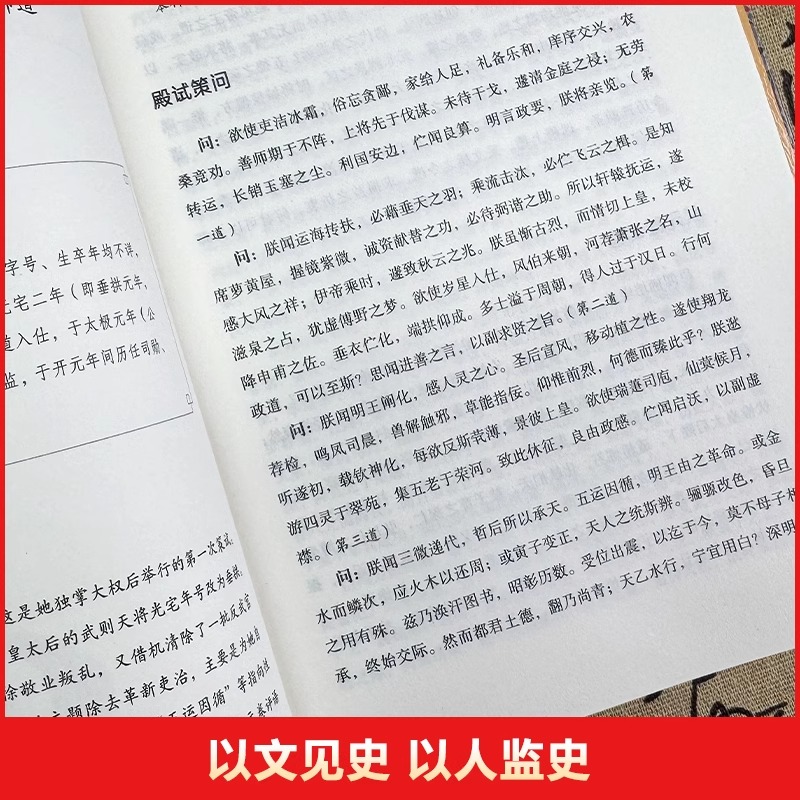 字号、生卒年均不详,
光宅二年（即垂拱元年,
道入仕，于太极元年（公
监，于开元年间历任司勋、
这是她独掌大权后举行的第一次策试,
皇太后的武则天将光宅年号改为垂拱,
徐敬业叛乱，又借机清除了一批反武官
主题除去革新吏治，主要是为她自
五运因循”等指向
殿试策问
问：欲使吏洁冰霜，俗忘贪鄙，家给人足，礼备乐和，庠序交兴，农
桑竞劝。善师期于不阵，上将先于伐谋。未待干戈，遽清金庭之祲；无劳
转运，长销玉塞之尘。利国安边，伫闻良算。明言政要，朕将亲览。（第
一道）
问：朕闻运海抟扶，必藉垂天之羽；乘流击汰，必伫飞云之楫。是知
席萝黄屋，握镜紫微，诚资献替之功，必待弼谐之助。所以轩辕抚运，遂
感大风之祥；伊帝乘时，遂致秋云之兆。朕虽惭古烈，而情切上皇，未校
滋泉之占，犹虚傅野之梦。欲使岁星入仕，风伯来朝，河荐萧张之名，山
降申甫之佐。垂衣仁化，端拱仰成。多士溢于周朝，得人过于汉日。行何
政道，可以至斯？思闻进善之言，以副求贤之旨。（第二道）
问：朕闻明王阐化，感人灵之心。圣后宣风，移动植之性。遂使翔龙
荐检，鸣凤司晨，兽解触邪，草能指佞。仰惟前烈，何德而臻此乎？朕逖
听遂初，载钦神化，每欲反斯茕薄，景彼上皇。欲使瑞萐司庖，仙蓂候月，
游四灵于翠苑，集五老于荣河。致此休征，良由政感。伫闻启沃，以副虚
襟。（第三道）
问：朕闻三微递代，哲后所以承天。五运因循，明王由之革命。或金
水而鳞次，应火木以还周；或寅子变正，天人之统斯辨。骊騵改色，昏旦
之用有殊。兹乃涣汗图书，昭彰历数。受位出震，以迄于今，莫不母子相
承，终始交际。然而都君土德，翻乃尚青；天乙水行，宁宜用白？深明
以文见史 以人监史